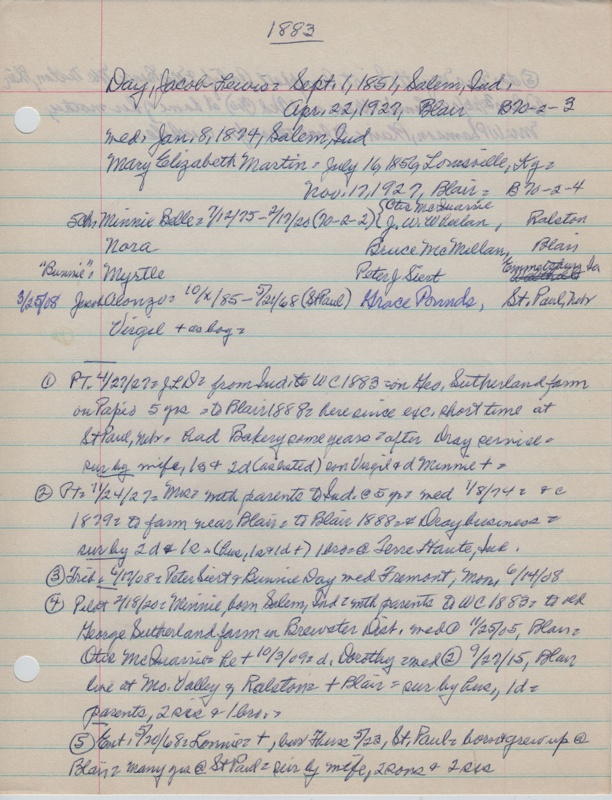 1883
Day, Jacob Lewis = Sept. 1, 1851, Salem, Ind.
Apr. 22, 1927, Blair B70-2-3
med. Jan. 8, 1874, Salem, Ind
Mary Elizabeth Martin = July 16, 1856, Louisville, Ky =
Nov. 17, 1927, Blair = B70-2-4
5 chs Minnie Belle = 7/12/75 - 2/17/20 (70-2-2) { Otis McQuarrie
J. W. Whelan, Ralston
Nora Bruce McMillan, Blair
"Bunnie" = Myrtle Peter J Siert Emmetsburg Ia
3/25/08 Jacob Alonzo = /85 - 5/24/68 (St Paul) Grace Pounds, St. Paul, Nebr
Virgil + as boy =
① PT. 4/27/27 = J L D = from Ind to W C 1883 = on Geo. Sutherland farm
on Papio 5 yrs = to Blair 1888 = here since exc. short time at
St Paul, Nebr. Had Bakery some years = after Dray service =
sur by wife, 1s & 2d son Virgil & d Minnie + =
② PT = 11/24/27 = Mrs = with parents to Ind. @ 5 yr = med 1/8/74 = & c
1879 = to farm near Blair = to Blair 1888 = & Dray business =
sur by 2d & 1s = (hus, 1s & 1d +) 1 bro = @ Terre Haute, Ind.
③ Trib = 6/17/08 = Peter Siert & Bunnie Day med Fremont, Mon, 6/14/08
④ Pilot 2/18/20 = Minnie, born Salem, Ind = with parents to W C 1883 = to old
George Sutherland farm in Brewster Dist. med @ 11/25/05, Blair =
Otis McQuarrie = he + 10/3/09 = d. Dorothy = med ② 9/27/15, Blair
live at Mo. Valley & Ralston = + Blair = sur by hus, 1d =
parents, 2 sis & 1 bro. =
⑤ Ent. 5/30/68 = Lonnie = +, bur Thurs 5/23, St. Paul = born & grew up @
Blair = many yrs @ St Paul = sur by wife, 2 sons & 2 sis